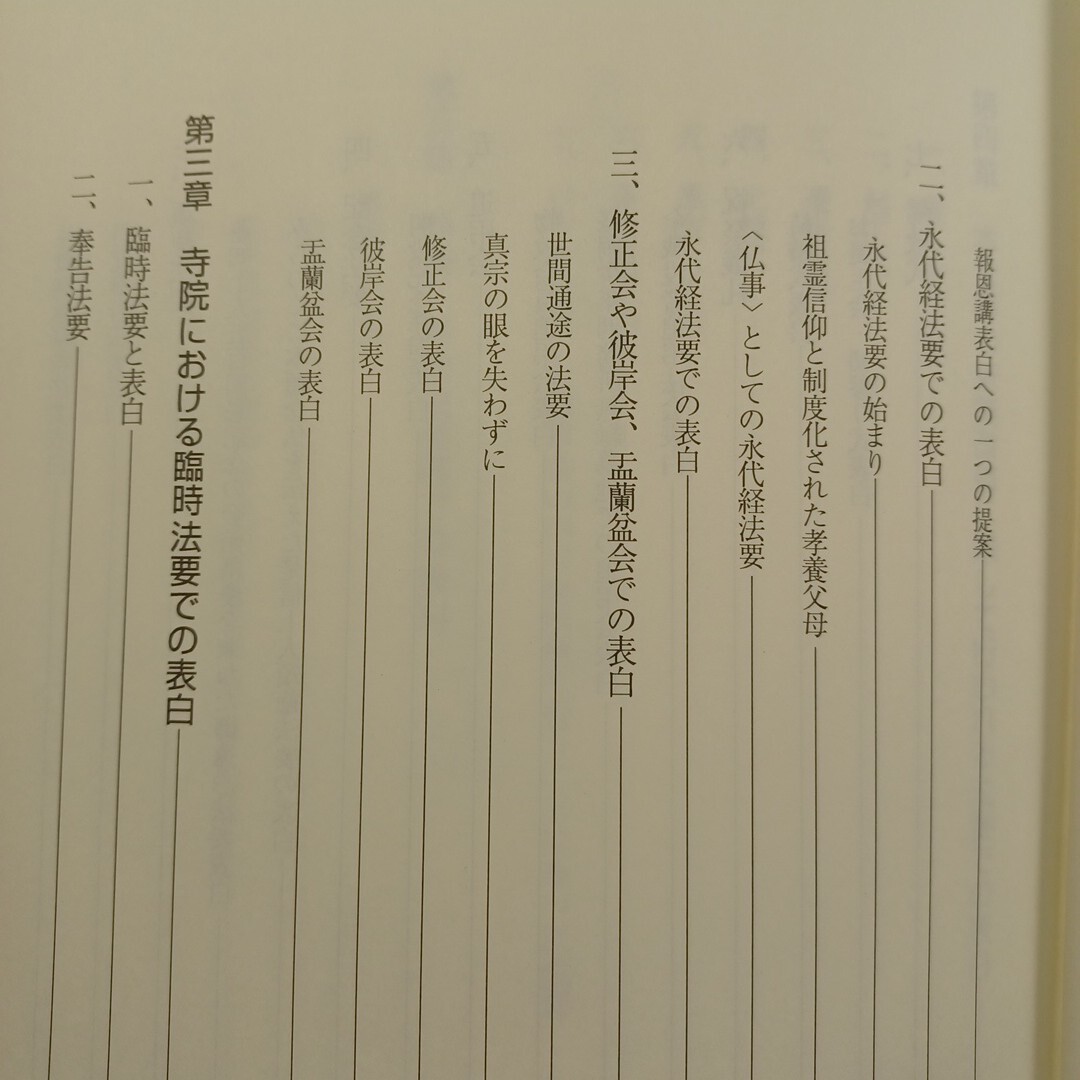 報恩講表白への一つの提案
二、永代経法要での表白
永代経法要の始まり
祖霊信仰と制度化された孝養父母
〈仏事〉としての永代経法要
永代経法要での表白
三、修正会や彼岸会、盂蘭盆会での表白
世間通途の法要
真宗の眼を失わずに
修正会の表白
彼岸会の表白
盂蘭盆会の表白
第三章　寺院における臨時法要での表白
一、臨時法要と表白
二、奉告法要